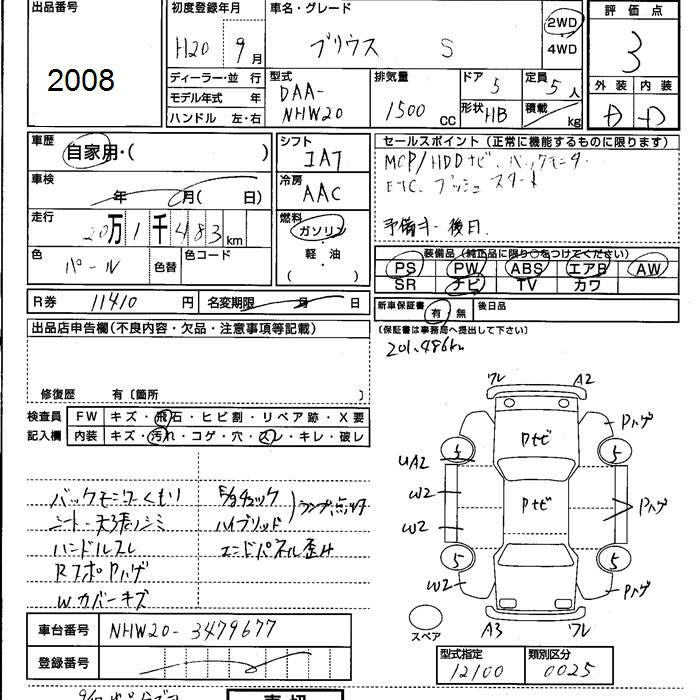 出品番号 初度登録年月 車名・グレード 評価点
2008 H20 9月 プリウス S 2WD 4WD 3
ディーラー・並行 型式 排気量 ドア 5 定員 5人 外装 内装
モデル年式 年 DAA-NHW20 1500cc 形状 HB 積載 kg D D
ハンドル 左・右
車歴 自家用・( )
シフト コAT
車検 年 月( 日)
冷房 AAC
走行 20万1千483km
燃料 ガソリン 軽・油 ( )
色 パール 色替 色コード
R券 11410円 名変期限 月 日
セールスポイント(正常に機能するものに限ります)
MCP/HDDナビ、バックモニター
ETC、プッシュスタート
後日
装備品(純正品に限り○をつけてください)
PS PW ABS エアB AW
SR ナビ TV カワ
新車保証書 有・無 後日品
(保証書は事務局へ提出して下さい)
201,486km
出品店申告欄(不良内容・欠品・注意事項等記載)
修復歴 有〔箇所 〕
検査員記入欄 FW キズ・飛石・ヒビ割・リペア跡・X要
内装 キズ・汚れ・コゲ・穴・スレ・キレ・破レ
バックモニターくもり
シート・天張りシミ
ハンドルスレ
RフォグPハゲ
Wカバーキズ
チェック
ハイブリッド
ランプ点灯
エンドパネル歪み
ワレ A2
Pナビ Pハゲ
5 5
UA2
W2 Pナビ Pハゲ
W2
5 5
W2 Pハゲ
スペア A3 ワレ
車台番号 NHW20-3479677
登録番号
型式指定 類別区分
12100 0025